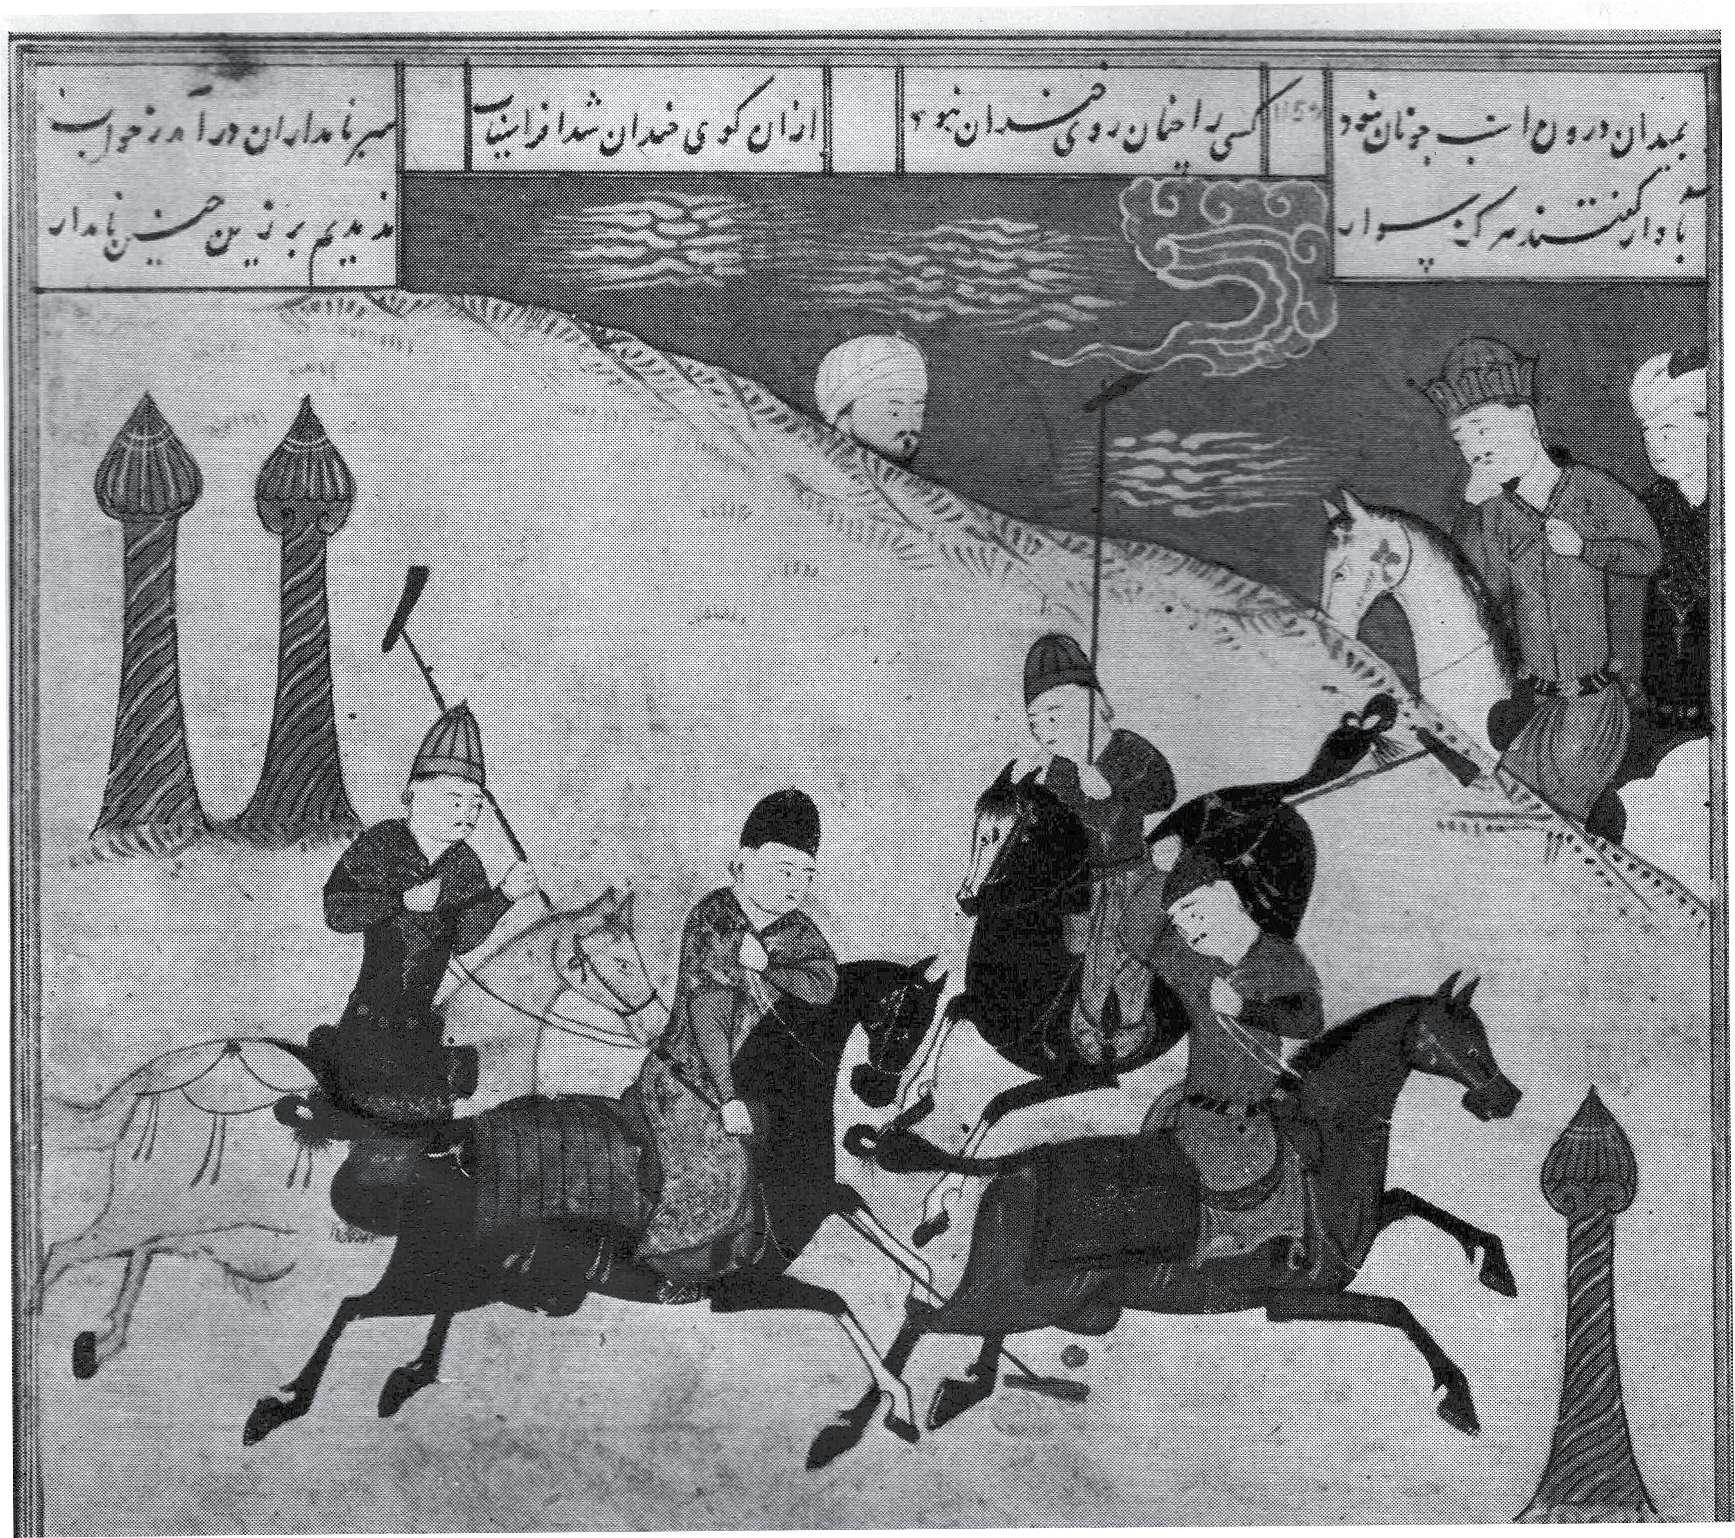 بمیدان درون اسب چونان نبود کسی را چنان روی خندان نبود ازان کوی خندان شد افراسیاب سر نامداران در آمد ز خواب
باواز گفتند هرگز سوار ندیدیم بر زین چنین نامدار